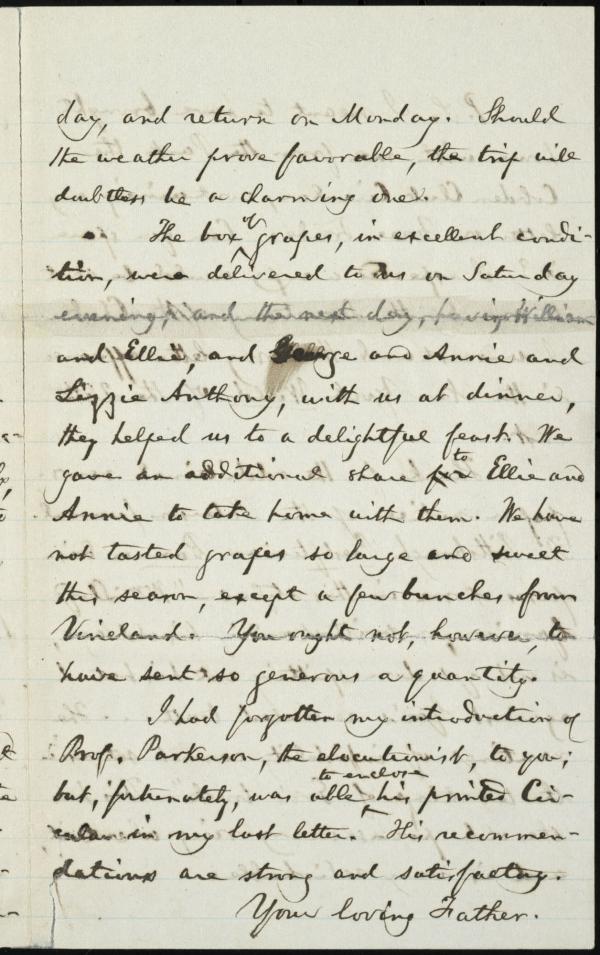 day, and return on Monday. Should
the weather prove favorable, the trip will
doubtless be a charming one.
The box of grapes, in excellent condi-
tion, were delivered to us on Saturday
evening; and the next day, having William
and Ellie, and George and Annie and
Lizzie Anthony, with us at dinner,
they helped us to a delightful feast. We
gave an additional share for to Ellie and
Annie to take home with them. We have
not tasted grapes so large and sweet
this season, except a few bunches from
Vineland. You ought not, however, to
have sent so generous a quantity.
I had forgotten my introduction of
Prof. Parkerson, the elocutionist, to you;
but, fortunately, was able to enclose his printed Cir-
cular in my last letter. His recommen-
dations are strong and satisfactory.
Your loving Father.